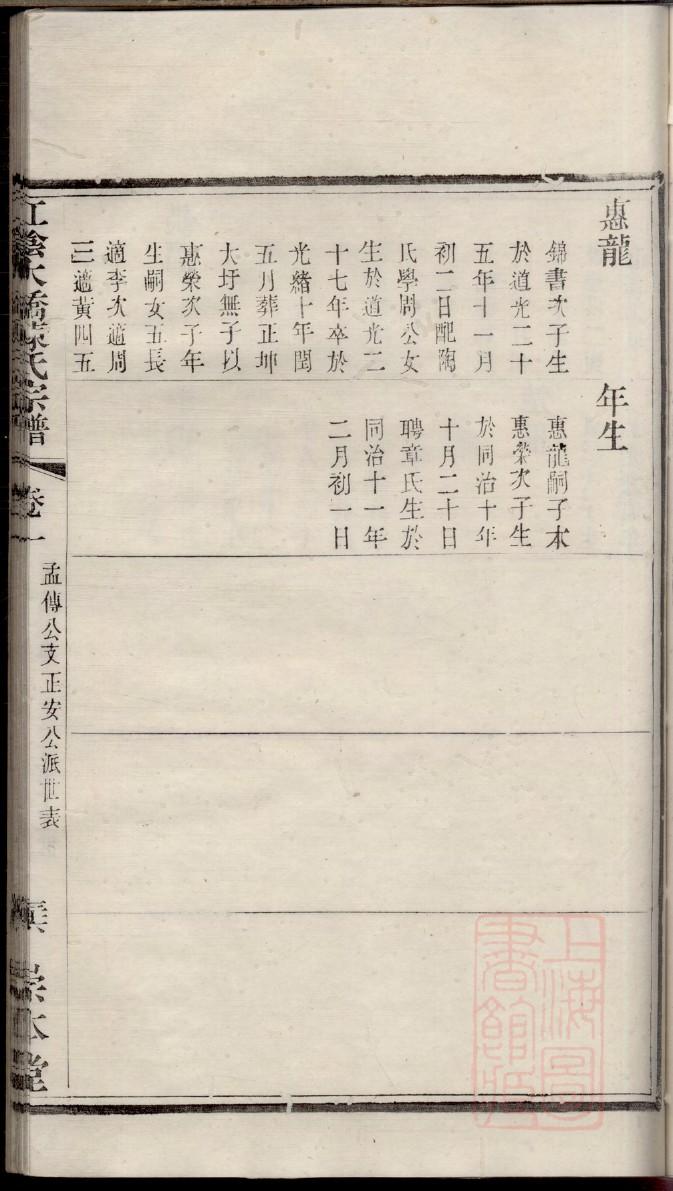 惠龍
錦書次子生
於道光二十
五年十一月
初二日配陶
氏學周公女
生於道光二
十七年卒於
光緒十年閏
五月葬正坤
大圩無子以
惠榮次子年
生嗣女五長
適李次適周
三適黃四五
年生
惠龍嗣子本
惠榮次子生
於同治十年
十月二十日
聘章氏生於
同治十一年
二月初一日
江陰大橋陳氏宗譜
卷一
孟傳公支正安公派世表
宗本堂
上海圖
書館藏